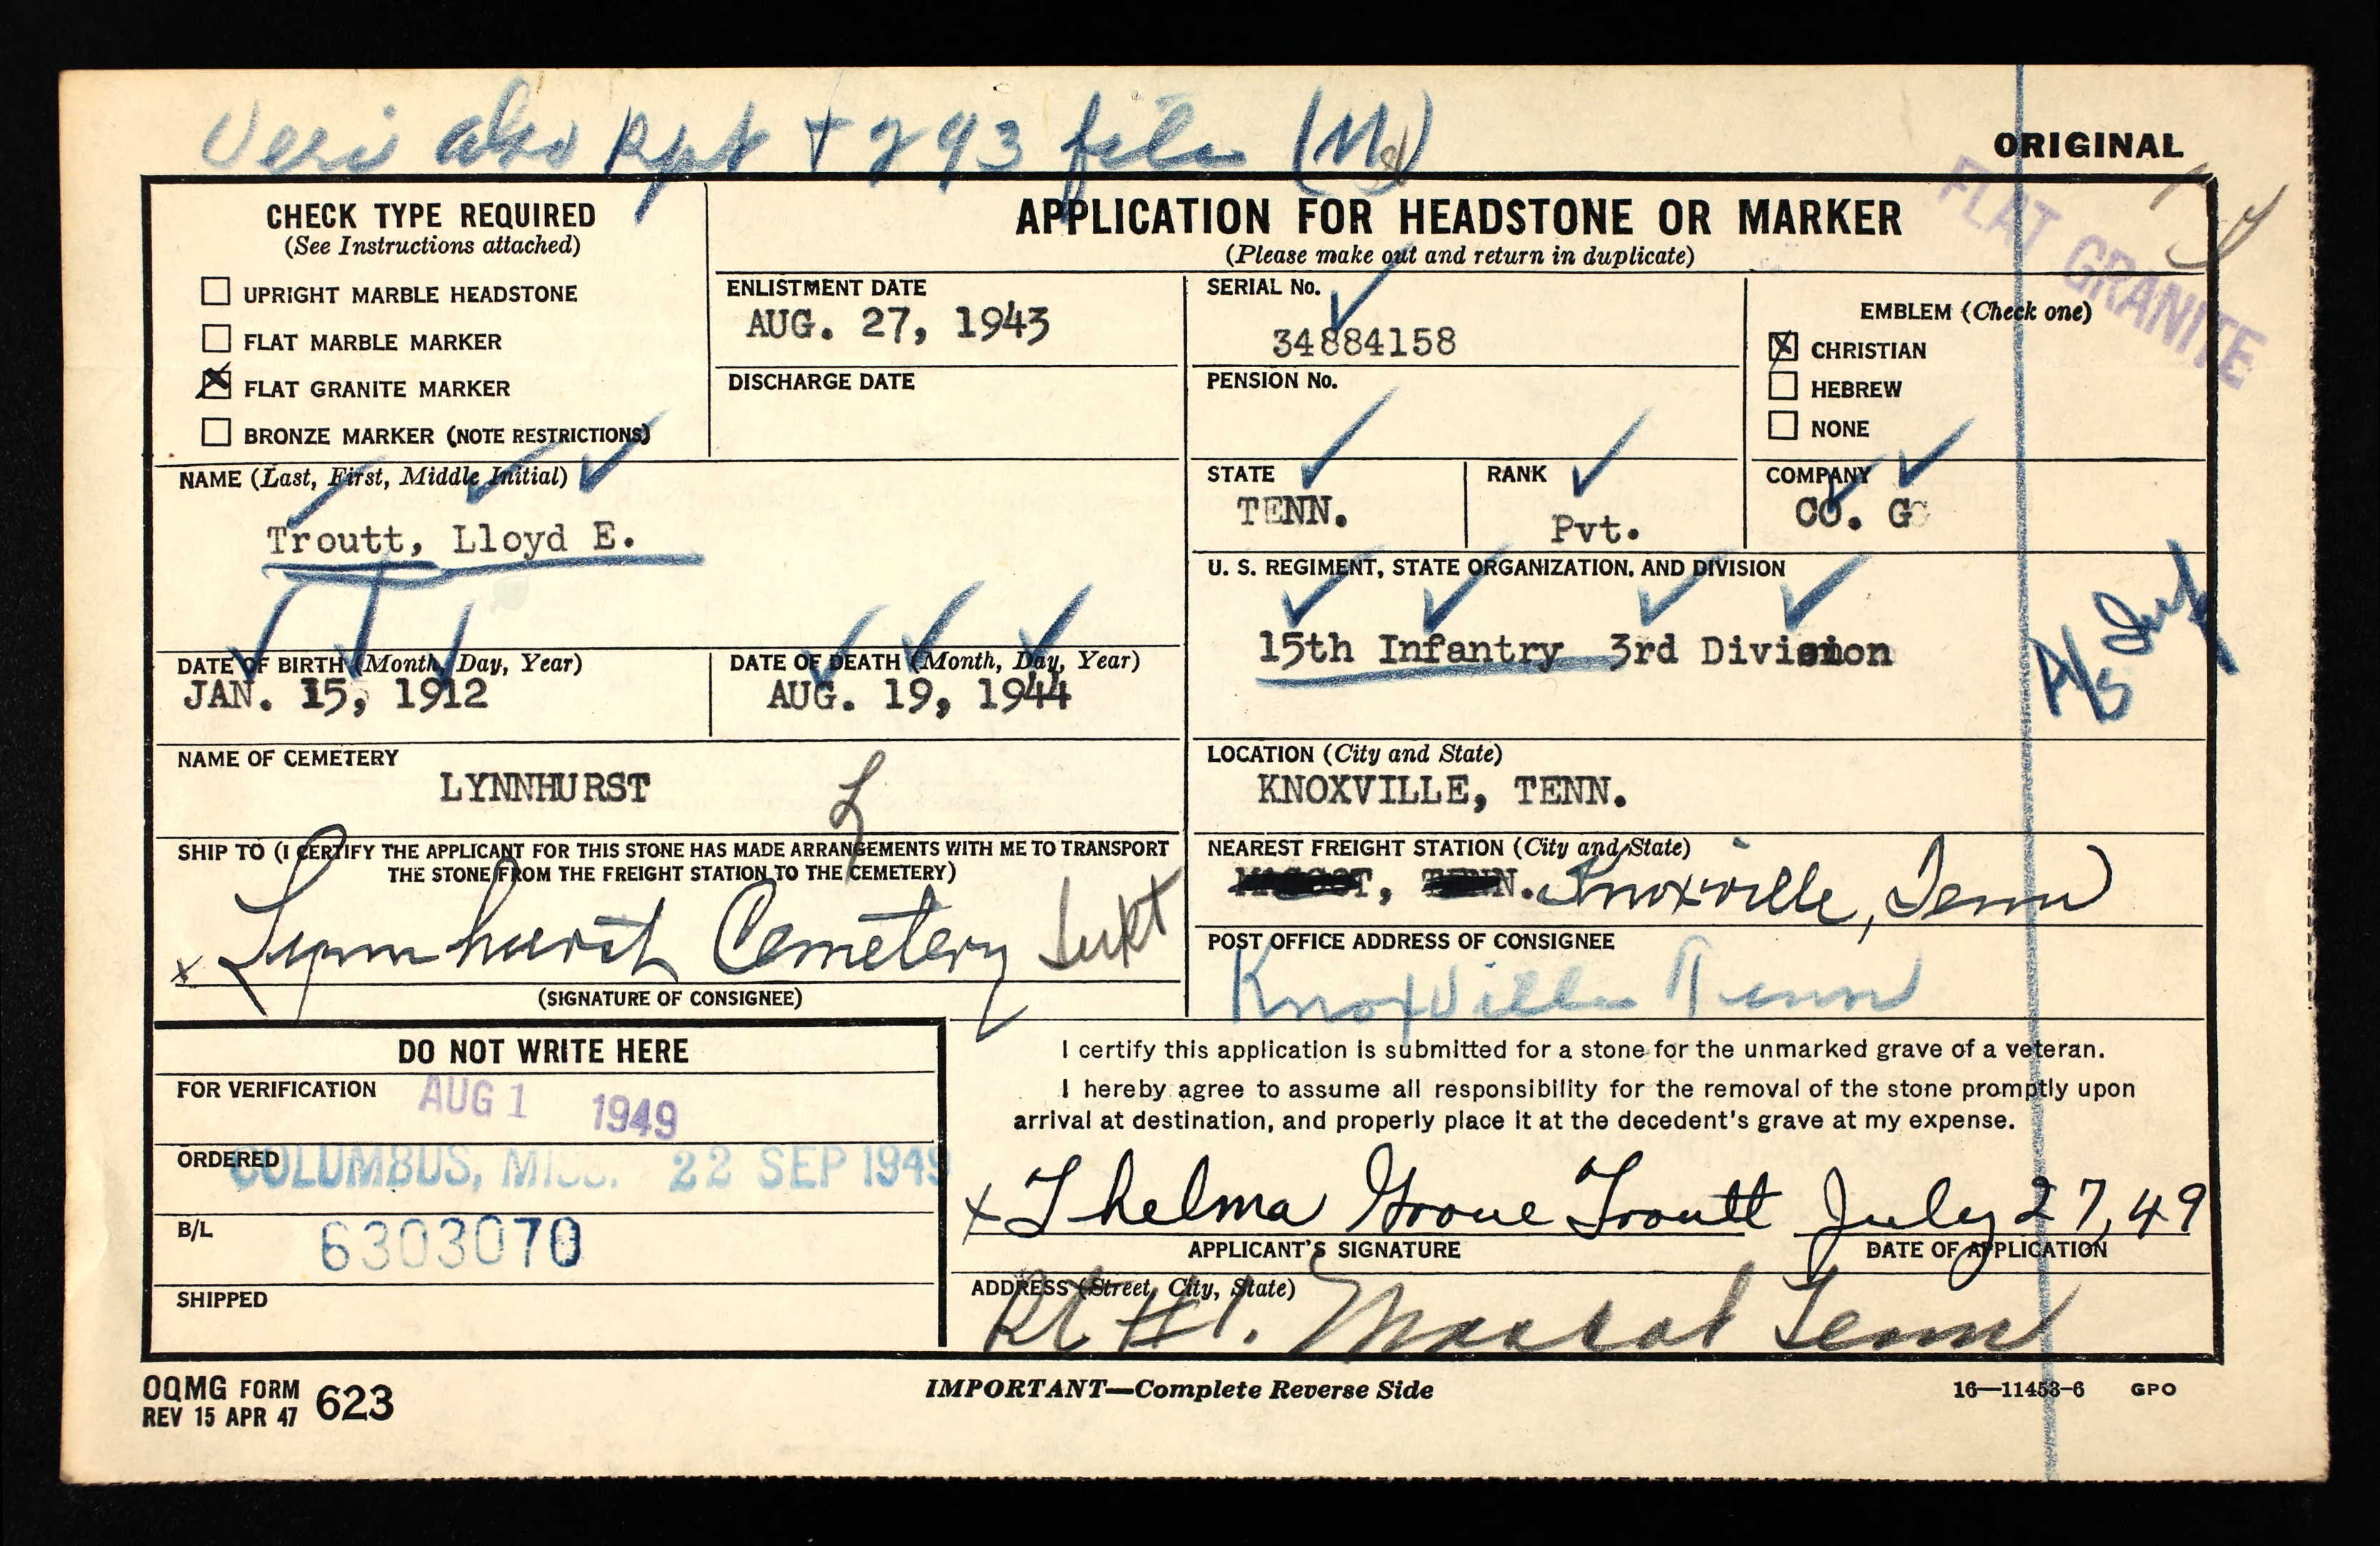 Veri also Rpt + 293 file
ORIGINAL
FLAT GRANITE
CHECK TYPE REQUIRED
(See Instructions attached)
UPRIGHT MARBLE HEADSTONE
FLAT MARBLE MARKER
FLAT GRANITE MARKER
BRONZE MARKER (NOTE RESTRICTIONS)
APPLICATION FOR HEADSTONE OR MARKER
(Please make out and return in duplicate)
ENLISTMENT DATE
AUG. 27, 1943
DISCHARGE DATE
SERIAL No.
34884158
PENSION No.
EMBLEM (Check one)
CHRISTIAN
HEBREW
NONE
NAME (Last, First, Middle Initial)
Troutt, Lloyd E.
STATE
TENN.
RANK
Pvt.
COMPANY
CO. G
U. S. REGIMENT, STATE ORGANIZATION, AND DIVISION
15th Infantry 3rd Division
DATE OF BIRTH (Month, Day, Year)
JAN. 15, 1912
DATE OF DEATH (Month, Day, Year)
AUG. 19, 1944
NAME OF CEMETERY
LYNNHURST
LOCATION (City and State)
KNOXVILLE, TENN.
SHIP TO (I CERTIFY THE APPLICANT FOR THIS STONE HAS MADE ARRANGEMENTS WITH ME TO TRANSPORT
THE STONE FROM THE FREIGHT STATION TO THE CEMETERY)
x Lynnhurst Cemetery
(SIGNATURE OF CONSIGNEE)
NEAREST FREIGHT STATION (City and State)
Knoxville, Tenn
POST OFFICE ADDRESS OF CONSIGNEE
Knoxville Tenn
DO NOT WRITE HERE
FOR VERIFICATION
AUG 1 1949
ORDERED
COLUMBUS, MISS. 22 SEP 1949
B/L
6303070
SHIPPED
I certify this application is submitted for a stone for the unmarked grave of a veteran.
I hereby agree to assume all responsibility for the removal of the stone promptly upon
arrival at destination, and properly place it at the decedent's grave at my expense.
x Thelma Grove Troutt July 27, 49
APPLICANT'S SIGNATURE
DATE OF APPLICATION
ADDRESS (Street, City, State)
Rt #1. Mascot Tenn
OQMG FORM 623
REV 15 APR 47
IMPORTANT—Complete Reverse Side
16—11453-6 GPO